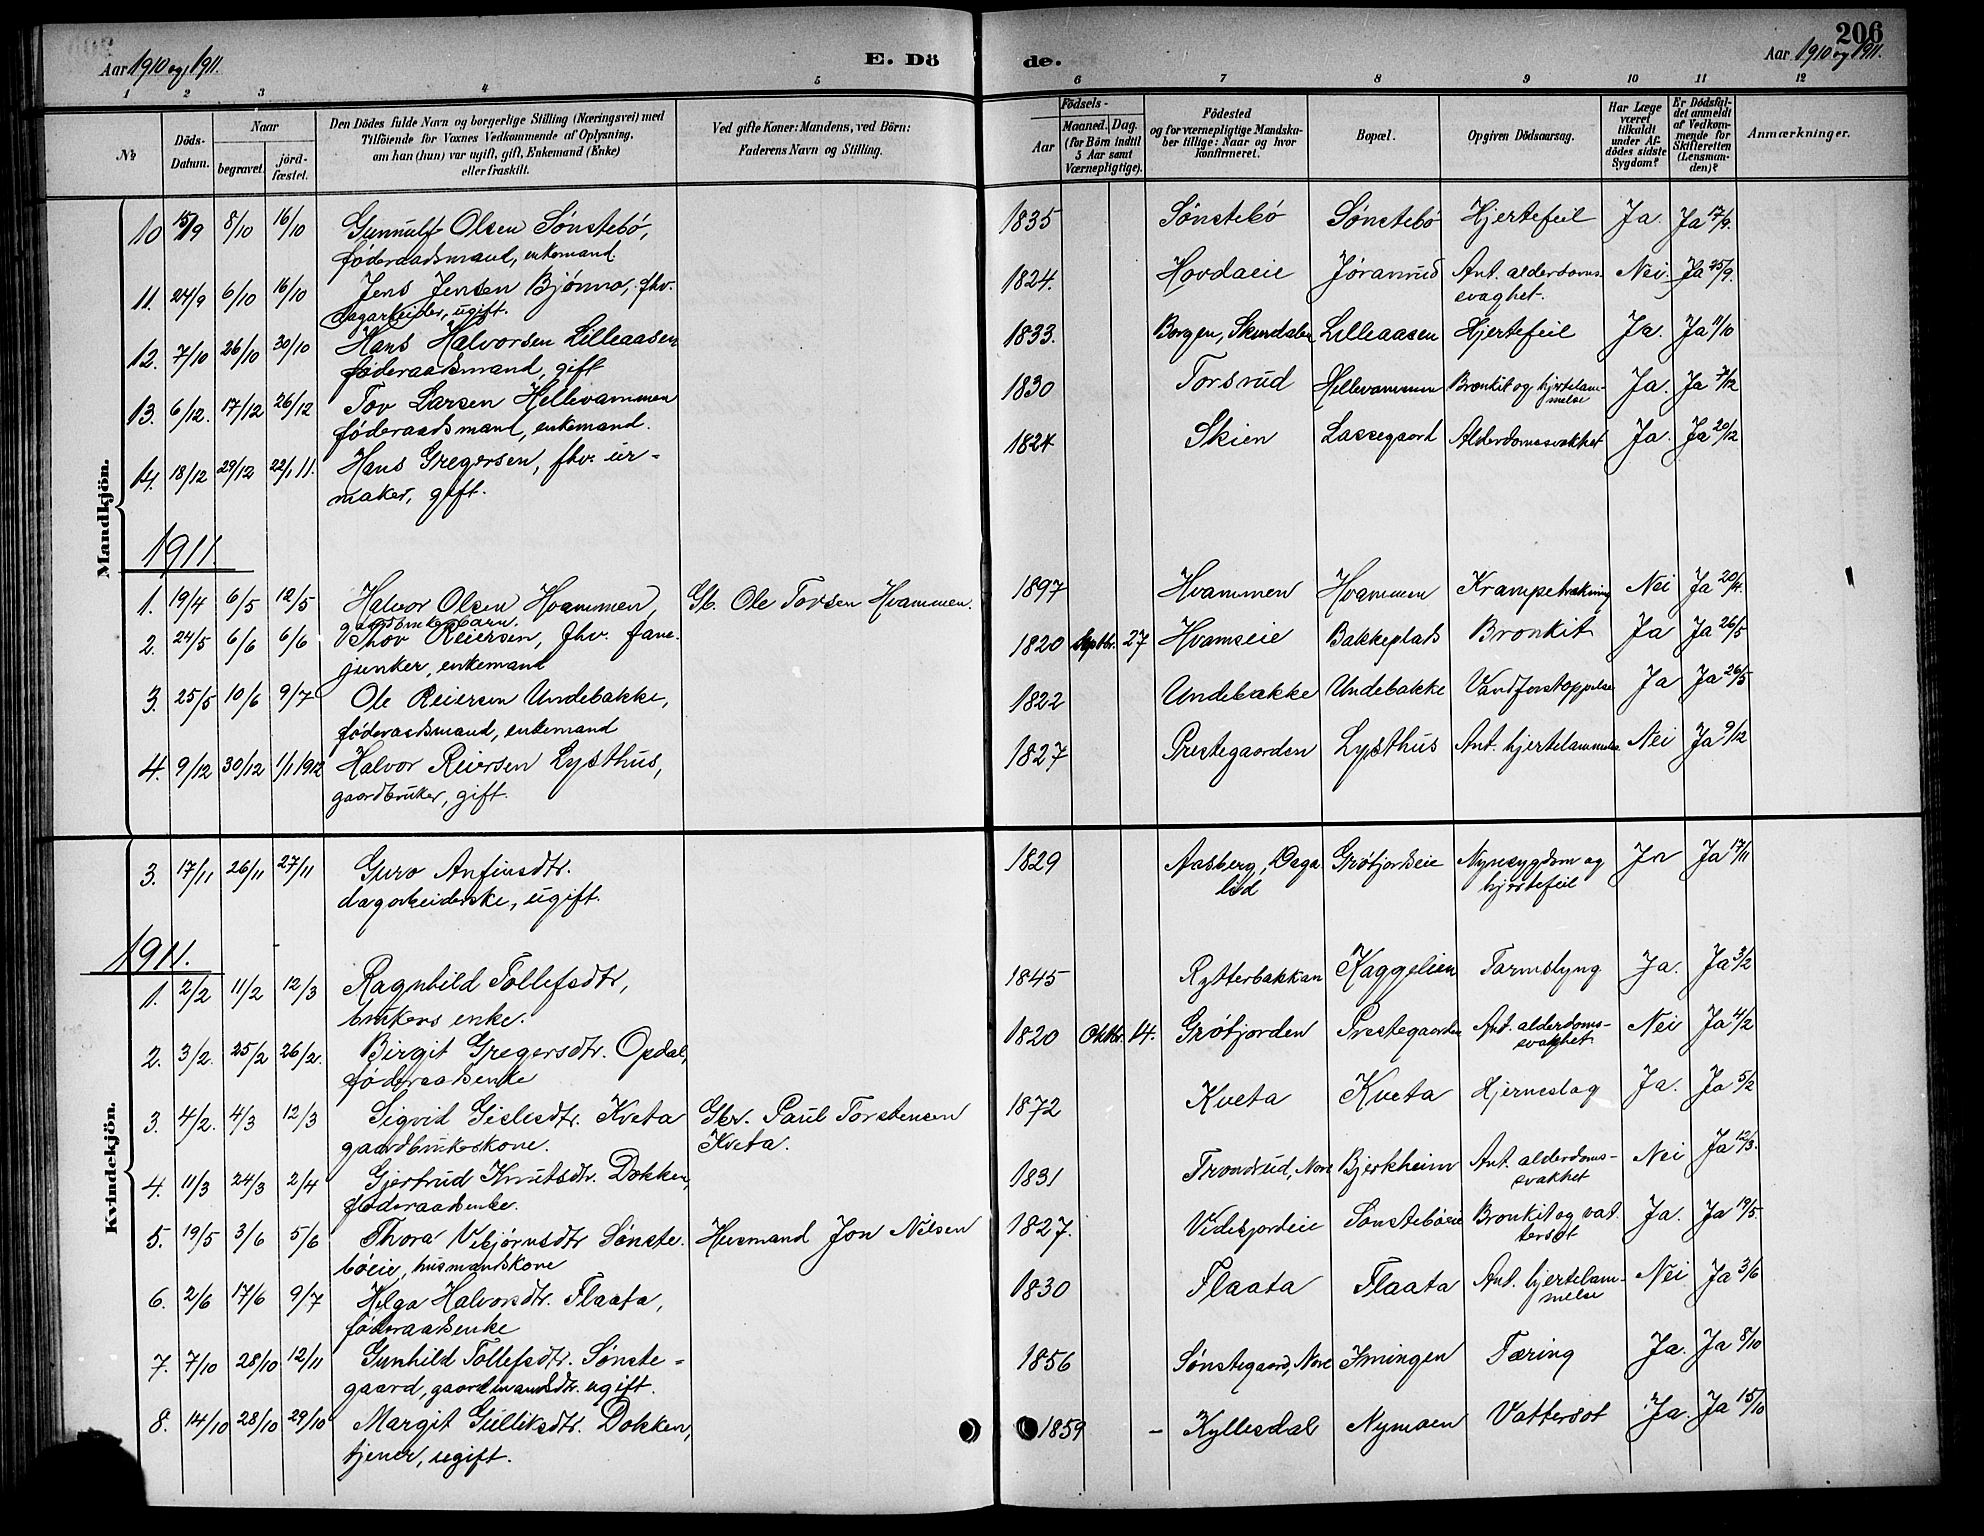 206
Aar 1910 og 1911.
E. Dö
de.
Aar 1910 og 1911.
1 2 3 4 5 6 7 8 9 10 11 12
No
Döds-Datum.
Naar
begravet.
jord-fæstet.
Den Dödes fulde Navn og borgerlige Stilling (Næringsvei) med
Tilföiende for Voxnes Vedkommende af Oplysning,
om han (hun) var ugift, gift, Enkemand (Enke)
eller fraskilt.
Ved gifte Koner: Mandens, ved Börn:
Faderens Navn og Stilling.
Födsels-
Aar
Maaned. Dag.
(for Börn indtil
5 Aar samt
Værnepligtige).
Födested
og for værnepligtige Mandska-
ber tillige: Naar og hvor
konfirmeret.
Bopæl.
Opgiven Dödsaarsag.
Har Læge
været
tilkaldt
under Af-
dödes sidste
Sygdom?
Er Dödsfal-
det anmeldt
af Vedkom-
mende for
Skifteretten
(Lensman-
den)?
Anmærkninger.
Mandkjön.
10 15/9 8/10 16/10 Gunnulf Olsen Sönstebö, 1835 Sönstebö Sönstebö Hjertefeil Ja. Ja 17/9.
föderaadsmand, enkemand.
11. 24/9 6/10 16/10 Jens Jensen Bjönno, fhv. 1824. Hovdaeie Jöranrud Ant. alderdoms- Nei. Ja 25/9.
dagarbeider, ugift. svaghet.
12. 7/10 26/10 30/10 Hans Halvorsen Lilleaasen 1833. Borgen, Skurdalen Lilleaasen Hjertefeil Ja. Ja 11/10
föderaadsmand, gift
13. 6/12. 17/12 26/12 Tov Larsen Hellevammen 1830 Torsrud Hellevammen Bronkit og hjertelam- Ja. Ja 7/12
föderaadsmand, enkemand. melse
14. 18/12 29/12 22/1 11. Hans Gregersen, fhv. ur- 1824 Skien Lassegaard Alderdomssvakhet Ja. Ja 20/12
maker, gift.
1911.
1. 19/4 6/5 12/5 Halvor Olsen Hvammen, Gb. Ole Torsen Hvammen. 1897 Hvammen Hvammen Krampetrækning Nei Ja 20/4.
gaardbrukerbarn.
2. 24/5 6/6 6/6 Thov Reiersen, fhv. fane- 1820 Septbr. 27 Hvamseie Bakkeplads Bronkit Ja Ja 26/5
junker, enkemand
3. 25/5 10/6 9/7 Ole Reiersen Undebakke, 1822 Undebakke Undebakke Vandforstoppelse Ja Ja 26/5
föderaadsmand, enkemand
4. 9/12 30/12 1/1 1912 Halvor Reiersen Lysthus, 1827 Prestegaarden Lysthus Ant. hjertelammelse Nei Ja 9/12
gaardbruker, gift.
Kvindekjön.
3. 17/11 26/11 27/11 Guro Anfinsdtr. 1829 Aasberg, Opda Gröfjordeie Nyresygdom og Ja Ja 17/11
dagarbeiderske, ugift. hjertefeil
1911.
1. 2/2 11/2 12/3 Ragnhild Tollefsdtr, 1845 Rytterbakkan Kaggelien Tarmslyng Ja. Ja 3/2
brukers enke.
2. 3/2. 25/2 26/2. Birgit Gregersdtr. Opdal, 1820 Oktbr. 14. Gröfjorden Prestegaarden Ant. alderdoms- Nei Ja 4/2
föderaadsenke svakhet
3. 4/2. 4/3 12/3 Sigrid Gislesdtr. Kveta Gbr. Paul Torstensen 1872 Kveta Kveta Hjerneslag Ja. Ja 5/2
gaardbrukerkone. Kveta.
4. 11/3 24/3 2/4 Gjertrud Knutsdtr. Dokken, 1831 Trondrud, Nore Bjerkheim Ant. alderdoms- Nei Ja 12/3.
föderaadsenke. svakhet
5. 19/5 3/6 5/6 Thora Vebjörnsdtr Sönste- Husmand Jon Nilsen 1827. Videsjordeie Sönsteböeie Bronkit og vat- Ja. Ja 19/5
böeie, husmandskone tersot
6. 2/6 17/6 9/7 Helga Halvorsdtr. Flaata, 1830 Flaata Flaata Ant. hjertelam- Nei Ja 3/6
föderaadsenke melse
7. 7/10 28/10 12/11 Gunhild Tollefsdtr. Sönste- 1856 Sönstegaard, Nore Imingen Tæring Ja. Ja 8/10
gaard, gaardmandsdtr. ugift.
8. 14/10 28/10 29/10 Margit Gulliksdtr. Dokken, 1859 – Kyllesdal Nymoen Vattersot Ja. Ja 15/10
tjener, ugift.